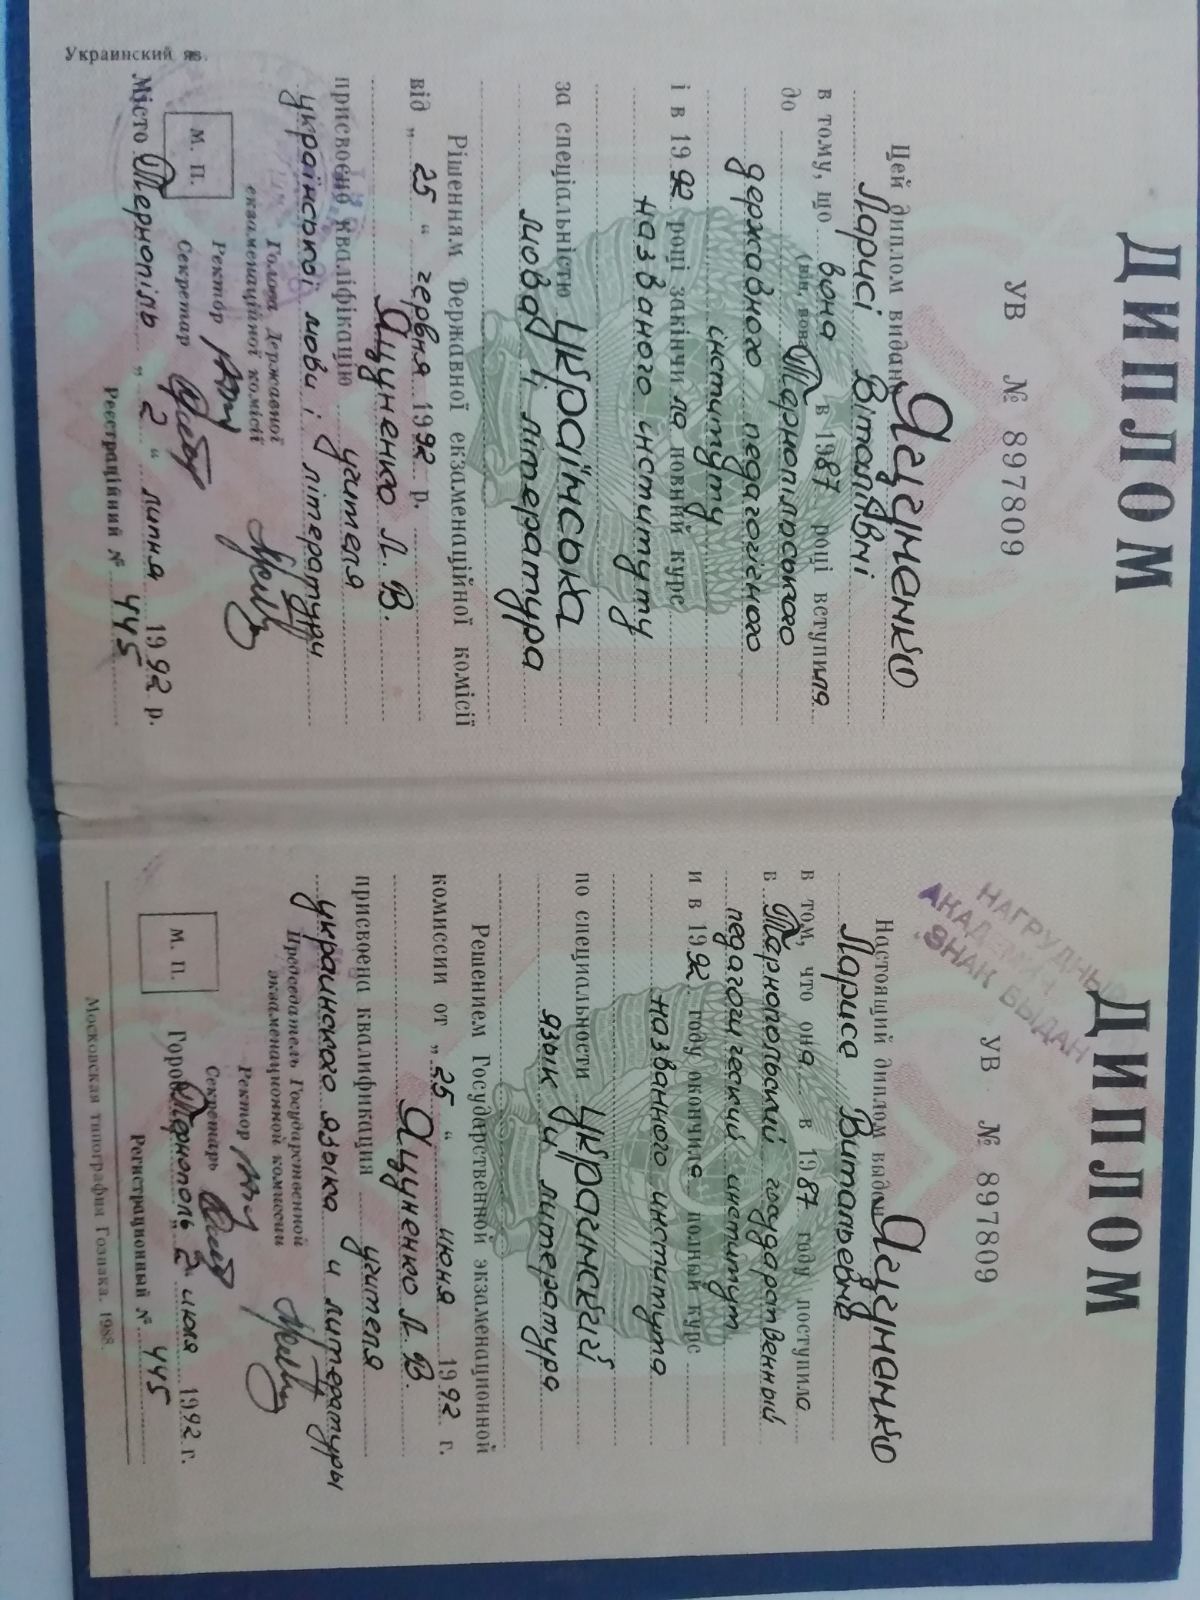 ДИПЛОМ
УВ № 897809
Цей диплом видано Яцуменко
Ларисі Віталіївні
в тому, що вона в 1987 році вступила
(він, вона)
до Тернопільського
державного педагогічного
інституту
і в 1992 році закінчила повний курс
названого інституту
за спеціальністю Українська
мова і література
Рішенням Державної екзаменаційної комісії
від „ 25 “ червня 1992 р.
Яцуненко Л. В.
присвоєно кваліфікацію учителя
української мови і літератури
Голова Державної
екзаменаційної комісії
Ректор
Секретар
М. П.
Місто Тернопіль „ 2 “ липня 1992 р.
Реєстраційний № 445
Украинский яз.
ДИПЛОМ
НАГРУДНЫЙ
АКАДЕМИЧ
ЗНАК ВЫДАН
УВ № 897809
Настоящий диплом выдан Яцуненко
Ларисе Витальевне
в том, что она в 1987 году поступила
в Тернопольский государственный
педагогический институт
и в 1992 году окончила полный курс
названного института
по специальности Украинский
язык и литература
Решением Государственной экзаменационной
комиссии от „ 25 “ июня 1992 г.
Яцуненко Л. В.
присвоена квалификация учителя
украинского языка и литературы
Председатель Государственной
экзаменационной комиссии
Ректор
Секретарь
М. П.
Город Тернополь „ 2 “ июля 1992 г.
Регистрационный № 445
Московская типография Гознака. 1988.